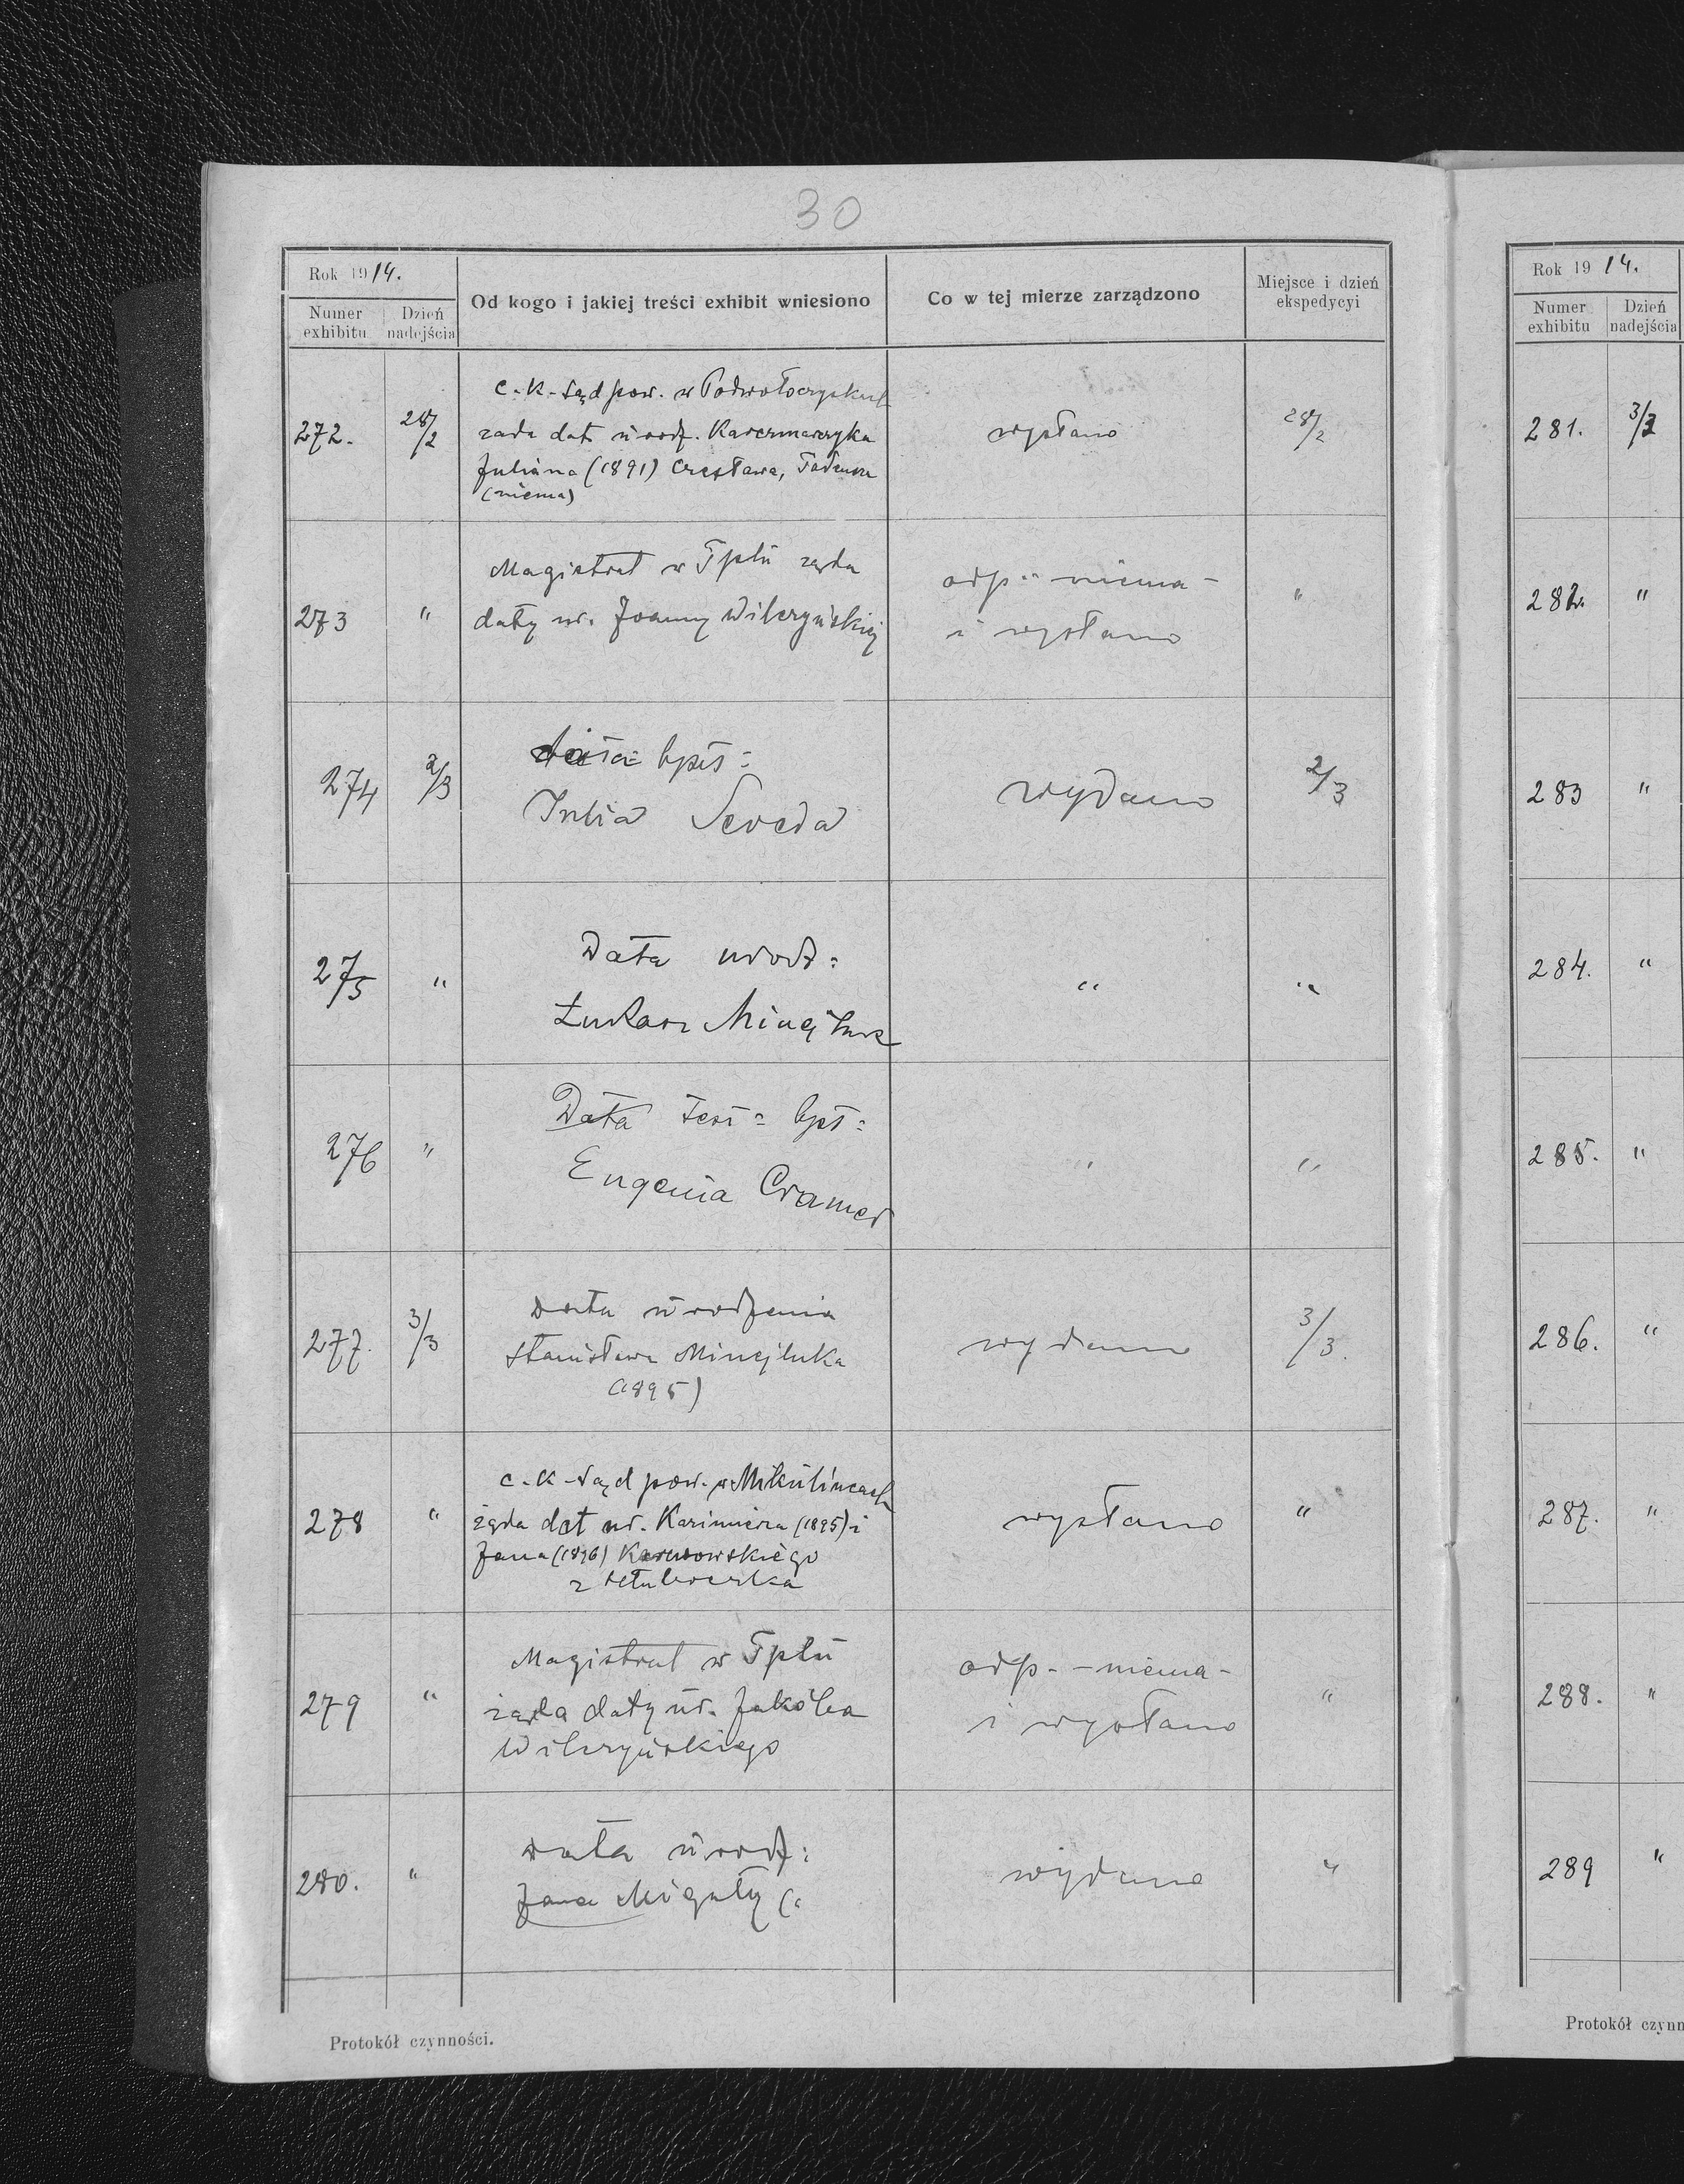 30
Rok 1914.
Numer exhibitu
Dzień nadejścia
Od kogo i jakiej treści exhibit wniesiono
Co w tej mierze zarządzono
Miejsce i dzień ekspedycyi
272. 28/2 c.k. sąd pow. w Podwołoczyskach wysłano 28/2
żąda dat urodz. Kaczmarczyka
Juliana (1891) Czesława, Tadeusza
(niema)
273 " Magistrat w Tplu żąda odp. niema - "
daty ur. Joanny Wilczyńskiej i wysłano
274 2/3 data bpt: wydano 2/3
Julia Sereda
275 " Data urodz: " "
Łukasz
276 " Data bpt: " "
Eugenia Cramer
277. 3/3 Data urodzenia wydano 3/3.
Stanisława
(1895)
278 " c.k. sąd pow. w Mikulińcach wysłano "
żąda dat ur. Kazimierza (1895) i
Jana (1896)
z
279 " Magistrat w Tplu odp. - niema - "
żąda daty ur. Jakóba i wysłano
Wilczyńskiego
280. " Data urodz: wydano "
Jana Miguły
Protokół czynności.
Rok 1914.
Numer exhibitu
Dzień nadejścia
281. 3/3
282. "
283 "
284. "
285. "
286. "
287. "
288. "
289 "
Protokół czynn